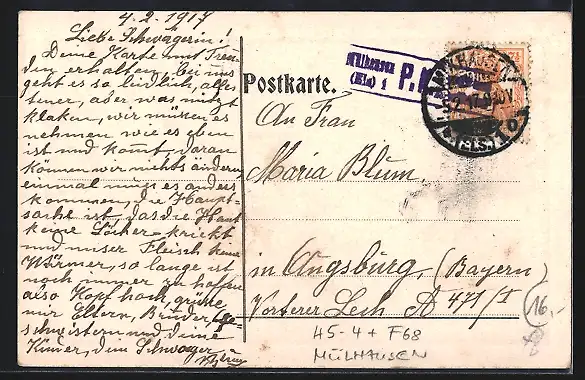 4.2.1917
Liebe Schwägerin!
Deine Karte mit Freu-
den erhalten, bei uns
geht es so ziemlich, alles
teuer, aber was nützt
klaken, wir müssen es
nehmen wie es eben
ist und komt, daran
können wir nichts ändern
einmal muss es anders
kommen, die Haupt-
sache ist, das die Haut
keine Löcher kriekt
und unser Fleisch keine
Würmer, so lange ist
noch immer zu hoffen
also Kopf hoch, grüße
mir Eltern, Brüder, ge-
schwistern und deine
Kinder, dein Schwager
Postkarte.
Mülhausen
(Els) 1
P.K.
MÜLHAUSEN
(ELS.) 1
An Frau
Maria Blum.
in Augsburg, (Bayern)
Vorderer Lech A 471/I
16,-
45-4+ F68
MÜLHAUSEN